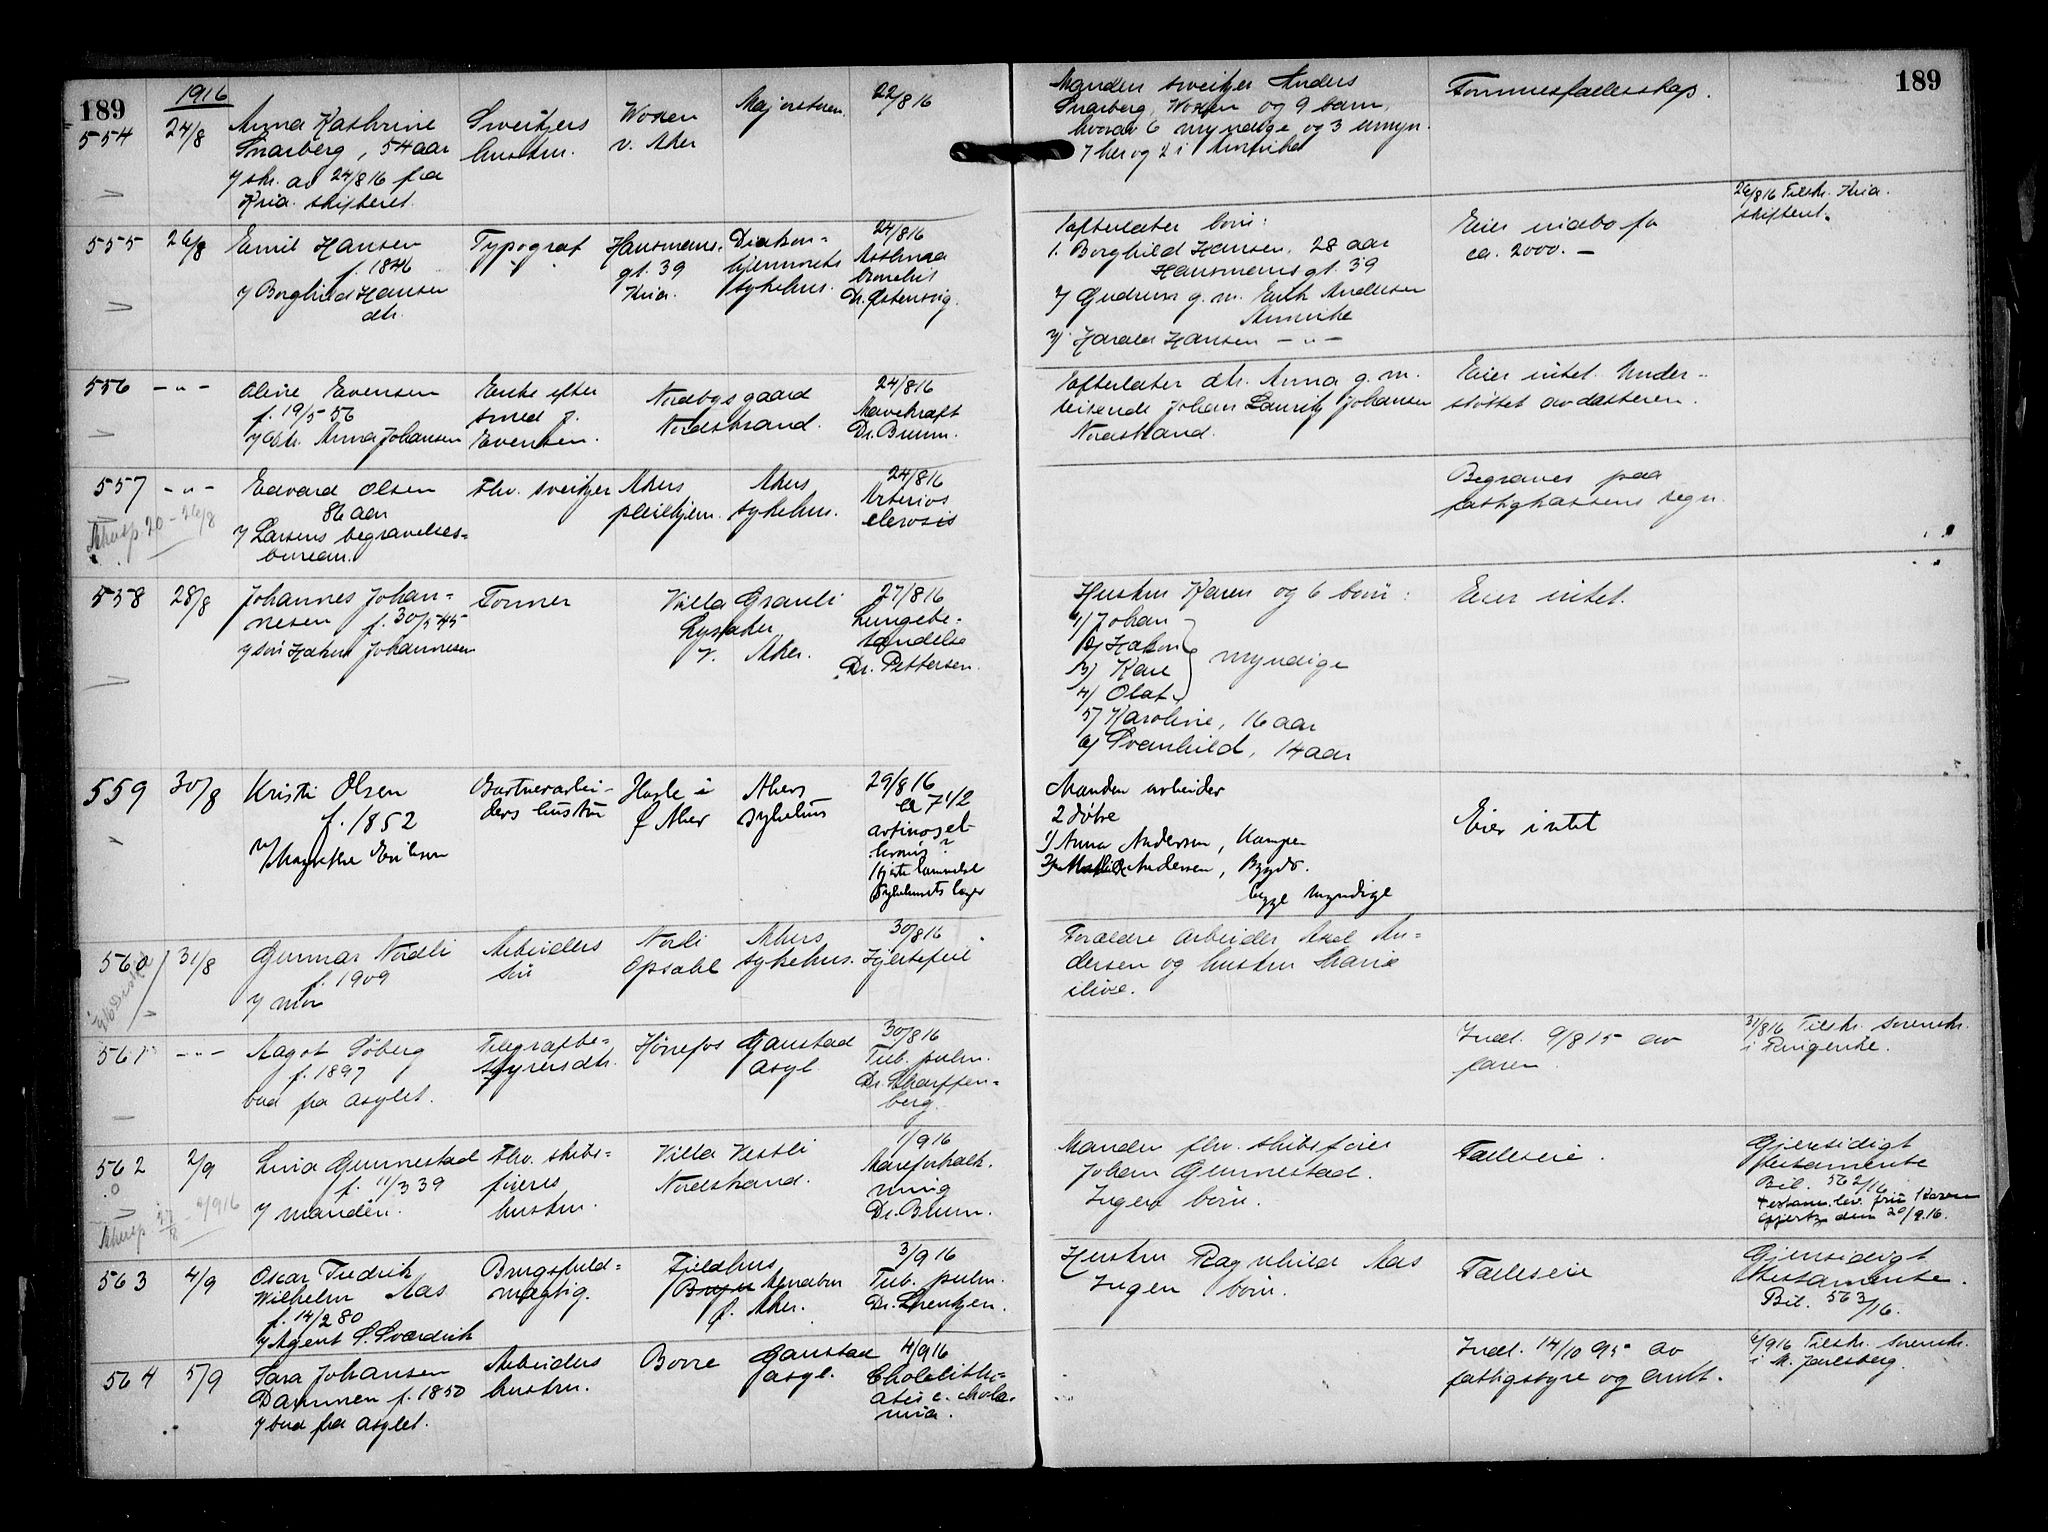 189
1916
189
554
24/8
Anna Kathrine
Snarberg, 54 aar
v/ skr. av 24/8 16 fra
Kria. skifteret.
Sveitzers
hustru.
Woxen
v. Aker
Majorstuen.
22/8 16
Manden sveitzer Anders
Snarberg, Woxen og 9 barn,
hvorav 6 myndige og 3 umyn.
7 her og 2 i Amerika
Formuesfællesskap.
26/8 16 Tilskr. Kria.
skifteret.
555
26/8
Emil Hansen
f. 1846
v/ Borghild Hansen
dtr.
Typograf
Hausmanns.
gt. 39
Kria.
Diakon=
hjemmets
sykehus.
24/8 16
Asthma
bronchis
Dr. Østensvig.
Efterlater børn:
1. Borghild Hansen, 28 aar
Hausmanns gt. 39
2/ Gudrun g. m. Erik Andersen
Amerika
3/ Harald Hansen — " —
Eier indbo for
ca. 2000. —
556
— " —
Oline Evensen
f. 19/5 56
v/ dtr. Anna Johansen
Enke efter
smed J.
Evensen.
Nordbys gaard
Nordstrand.
24/8 16
Mavekræft
Dr. Bruun.
Efterlater dtr. Anna g. m.
reisende Johan Lauritz Johansen
Nordstrand.
Eier intet. Under=
støttet av datteren.
557
— " —
Edvard Olsen
86 aar
v/ Larsens begravelses=
bureau.
Fhv. sveitzer
Akers
pleiehjem.
Akers
sykehus.
24/8 16
Arterios
clerosis
Begraves paa
fattigkassens regn.
558
28/8
Johannes Johan=
nesen f. 30/5 45
v/ søn Hakon Johannesen
Tømmer
Villa Granli
Lysaker
V. Aker.
27/8 16
Lungebe=
tændelse
Dr. Pettersen.
Hustru Karen og 6 børn:
1/ Johan
2/ Hakon
3/ Karl
4/ Olaf
myndige
5/ Karoline, 16 aar
6/ Svanhild, 14 aar
Eier intet.
559
30/8
Kristi Olsen
f. 1852
v/ Margrethe Eriksen
Gartnerarbei=
ders hustru
Hasle i
Ø Aker
Akers
sykehus
29/8 16
kl 7 1/2
Hjerte lammelse
Sykehusets læge
Manden arbeider
2 døtre
1) Anna Andersen, Kampen
2) Andersen, Bygdø.
begge myndige
Eier intet
560
31/8
Gunnar Nordli
f. 1909
v/ mor
Arbeiders
søn
Nordli
Opsahl
Akers
sykehus.
30/8 16
Hjertefeil
Forældre arbeider Axel An=
dersen og hustru Marie
ilive.
561
— " —
Aagot Söberg
f. 1897
bud fra asylet.
Telegrafbe=
styrers dtr.
Hønefos
Gaustad
asyl
30/8 16
Tub. pulm.
Dr. Scharffen=
berg.
Indl. 9/8 15 av
faren.
31/8 16 Tilskr. sorenskr.
i Ringerike.
562
2/9
Lina Gunnestad
f. 11/3 39
v/ manden.
Fhv. skibs=
føreres
hustru.
Villa Vestli
Nordstrand.
1/9 16
Aareforkalk.
ning
Dr. Bruun.
Manden fhv. skibsfører
Johan Gunnestad.
Ingen børn.
Fælleseie.
Gjensidigt
testamente
Bil. 562/16
Testam. lev. frk Karen
Gjertz den 20/9.16.
563
4/9
Oscar Fredrik
Wilhelm Aas
f. 14/2 80
v/ Agent S. Sværdvik
Brugsfuld=
mægtig.
Fjeldhus
Ø. Aker.
3/9 16
Tub. pulm.
Dr. Lorentzen.
Hustru Ragnhild Aas
Ingen børn.
Fælleseie
Gjensidigt
testamente.
Bil. 563/16.
564
5/9
Sara Johansen
Dammen f. 1850
v/ bud fra asylet.
Arbeiders
hustru.
Borre
Gaustad
asyl.
4/9 16
Cholelithi=
asis c. cholæ=
mia.
Indl. 14/10 95 av
fattigstyre og amt.
6/9 16 Tilskr. sorenskr.
i N. Jarlsberg.